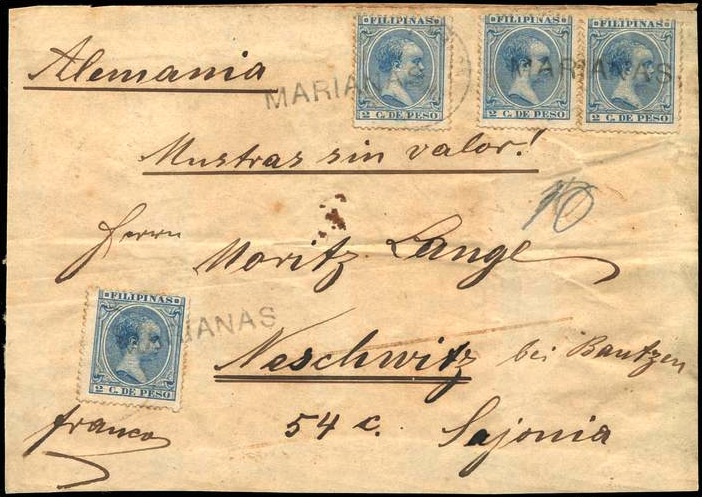 FILIPINAS FILIPINAS FILIPINAS
Alemania
MARIANAS MARIANAS
2 C. DE PESO 2 C. DE PESO 2 C. DE PESO
Mustras sin valor!
10
Herrn
Moritz Lange
FILIPINAS
MARIANAS
Neschwitz bei Bautzen
2 C. DE PESO
franco
54 c. Sajonia